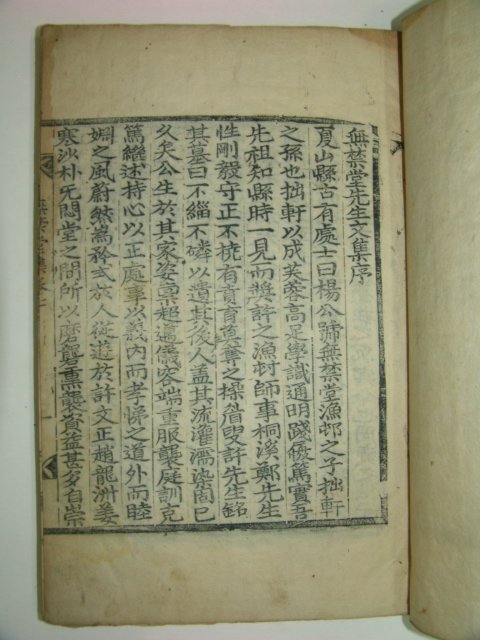 無禁堂先生文集序
夏山縣古有處士曰楊公號無禁堂漁邨之子拙軒
之孫也拙軒以成芙蓉高足學識通明踐履篤實吾
先祖知縣時一見而奬許之漁邨師事桐溪鄭先生
性剛毅守正不撓有賁育莫奪之操眉叟許先生銘
其墓曰不緇不磷以遺其後人盖其流灌濡染固已
久矣公生於其家姿稟超邁儀容端重服襲庭訓克
篤繼述持心以正處事以義內而孝悌之道外而睦
婣之風蔚然爲矜式於人從遊於許文正趙龍洲姜
寒沙朴无悶堂之間所以磨礱熏襲資益甚多自崇